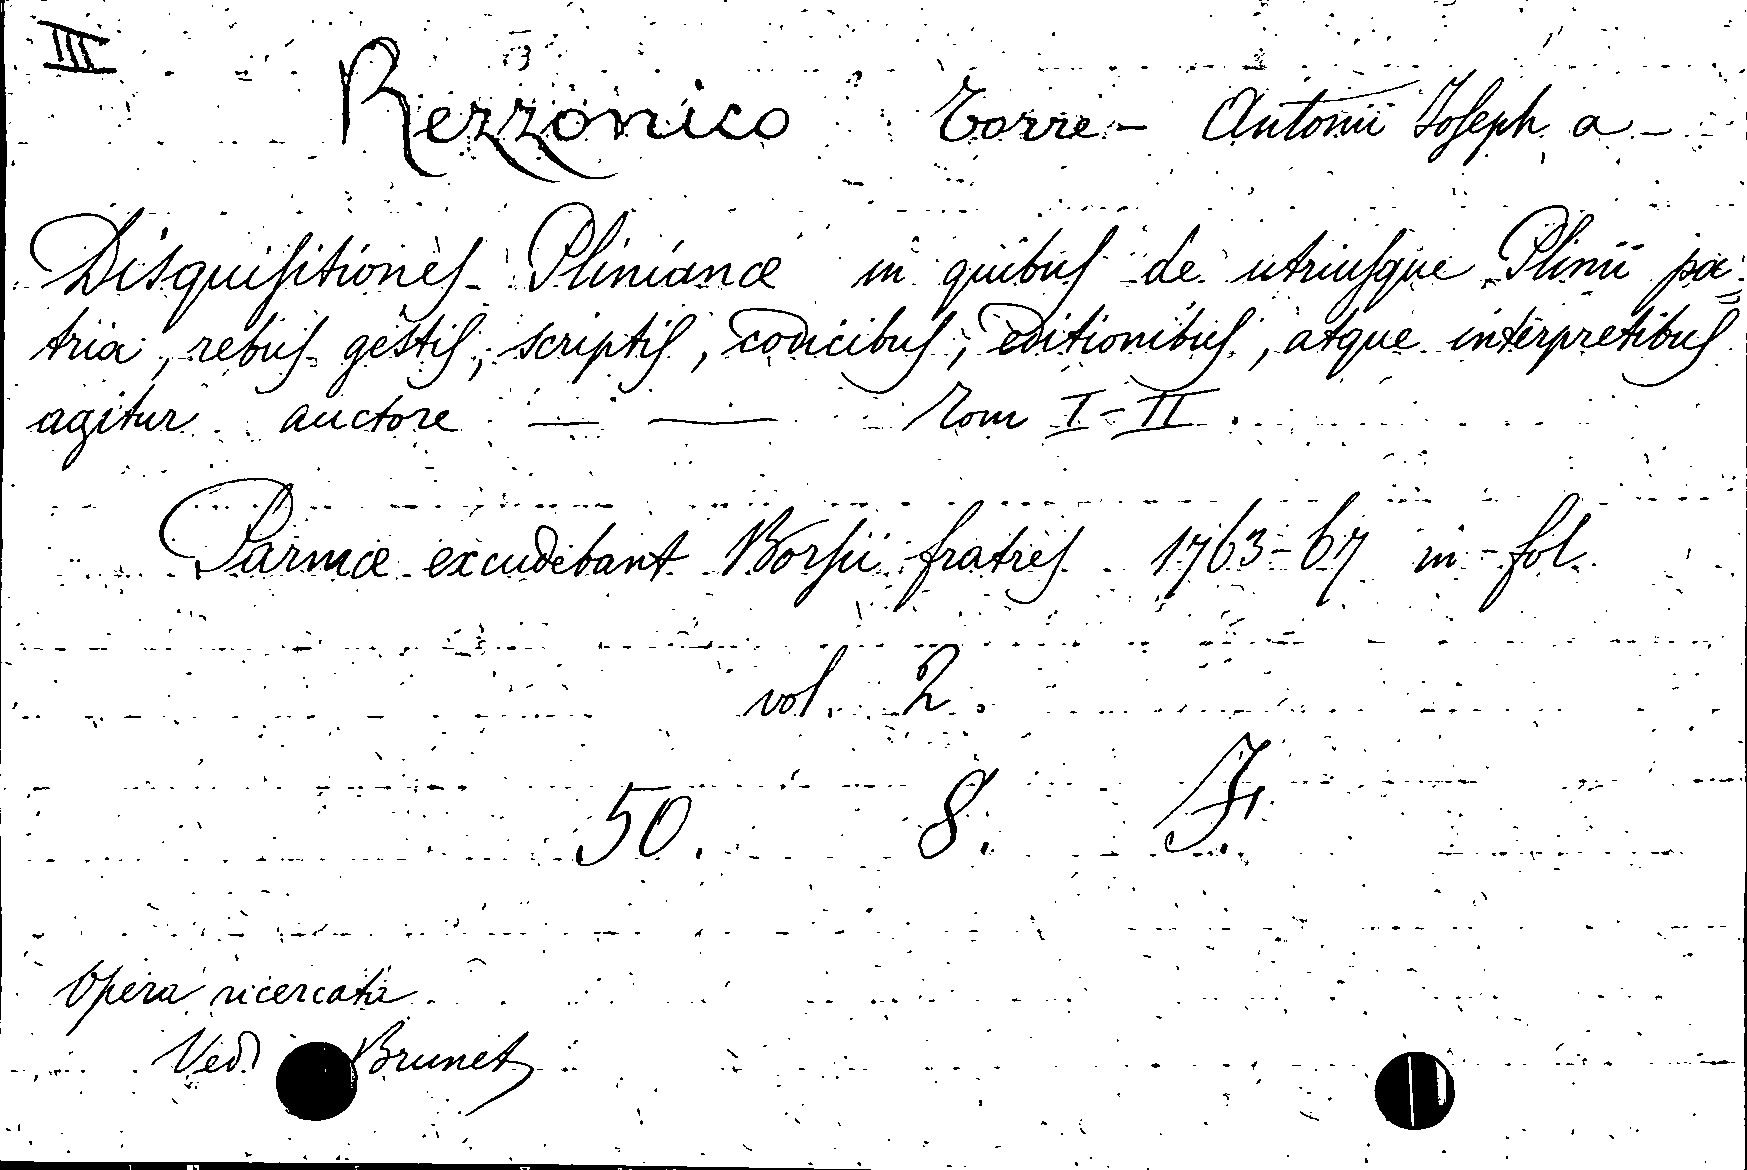 III
Rezzonico Torre - Antonii Joseph a -
Disquisitiones Plinianæ in quibus de utriusque Plinii pa=
tria, rebus gestis, scriptis, codicibus, editionibus, atque interpretibus
agitur auctore — — Tom I-II.
Parmæ excudebant Borsii fratres 1763-67 in-fol.
vol. 2.
50. 8. F.
Opera ricercata
Ved Brunet